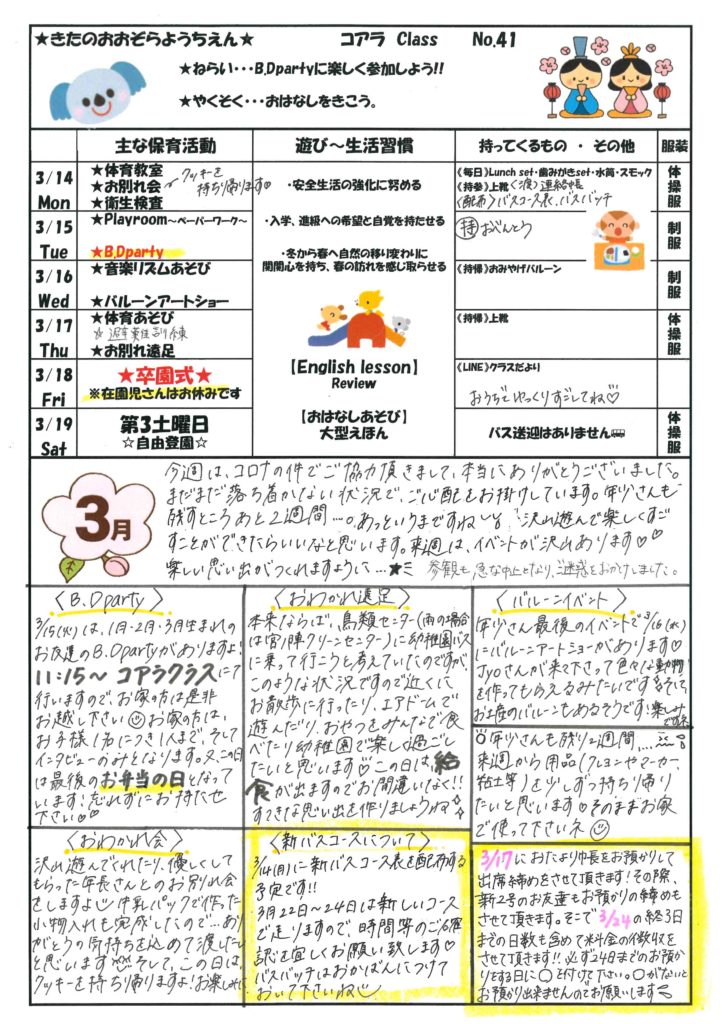 ★きたのおおぞらようちえん★ コアラ Class No.41
★ねらい・・・B,Dpartyに楽しく参加しよう!!
★やくそく・・・おはなしをきこう。
主な保育活動 遊び～生活習慣 持ってくるもの ・ その他 服装
3/14 Mon
★体育教室
★お別れ会 クッキーを持ち帰ります♡
★衛生検査
3/15 Tue
★Playroom～ペーパーワーク～
★B,Dparty
3/16 Wed
★音楽リズムあそび
★バルーンアートショー
3/17 Thu
★体育あそび
★お別れ遠足
3/18 Fri
★卒園式★
※在園児さんはお休みです
3/19 Sat
第3土曜日
☆自由登園☆
・安全生活の強化に努める
・入学、進級への希望と自覚を持たせる
・冬から春へ自然の移り変わりに
関関心を持ち、春の訪れを感じ取らせる
【English lesson】
Review
【おはなしあそび】
大型えほん
《毎日》Lunch set・歯みがきset・水筒・スモック
《持参》上靴 〈渡〉連絡帳
〈配布〉バスコース表、バスバッチ
持 おべんとう
《持帰》おみやげバルーン
《持帰》上靴
《LINE》クラスだより
おうちでゆっくりすごしてね♡
バス送迎はありません
体操服
制服
制服
体操服
体操服
3月
今週は、コロナの件でご協力頂きまして、本当にありがとうございました。
まだまだ落ち着かない状況で、ご心配をお掛けしています。年少さんも
残すところあと2週間…。あっというまですね 沢山遊んで楽しくすご
すことができたらいいなと思います。来週は、イベントが沢山あります♡♡
楽しい思い出がつくれますように…★ 参観も急な中止となり、ご迷惑をおかけしました。
〈B.Dparty〉
3/15(火)は、1月・2月・3月生まれの
お友達のB.Dpartyがありますよ!
11:15～ コアラクラスにて
行いますので、お家の方は是非
お越し下さい☺お家の方は、
お子様1名につき1人まで、そして
インタビューのみとなります。又、この日
は最後のお弁当の日となって
います!忘れずにお持たせ
下さい♡♡
〈おわかれ遠足〉
本来ならば、鳥類センター(雨の場合
は宮ノ陣クリーンセンター)に幼稚園バス
に乗って行こうと考えていたのですが、
このような状況ですので近くに
お散歩に行ったり、エアドームで
遊んだり、おやつをみんなで食
べたり幼稚園で楽しく過ごし
たいと思います♡この日は、給
食が出ますのでお間違いなく!!
すてきな思い出を作りましょうね
〈バルーンイベント〉
年少さん最後のイベントで3/16(水)
にバルーンアートショーがあります♡
Jyoさんが来て下さって色々な動物
を作ってもらえるみたいです!そして
お土産のバルーンもあるそうです!楽しみ
ですネ
年少さんも残り2週間…
来週から用品(クレヨンやマーカー、
粘土等)を少しずつ持ち帰り
たいと思います♡そのままお家
で使って下さいネ☺
〈おわかれ会〉
沢山遊んでくれたり、優しくして
もらった年長さんとのお別れ会
をしますよ 牛乳パックで作った
小物入れも完成したので…あり
がとうの気持ちを込めて渡したい
と思います そして、この日は、
クッキーを持ち帰りますよ!お楽しみに
〈新バスコースについて〉
3/14(月)に新バスコース表を配布する
予定です!!
3月22日～24日は新しいコース
で走りますので、時間等のご確
認を宜しくお願い致します♡
バスバッチはおかばんにつけて
おいて下さいね
3/17におたより帳をお預かりして
出席締めをさせて頂きます!その際、
新2号のお友達もお預かりの締めも
させて頂きます。そこで3/24の終了日
までの日数も含めて料金の徴収を
させて頂きます!!必ず24日までのお預か
りをする日に○を付けて下さい。○がないと
お預かり出来ませんのでお願いします